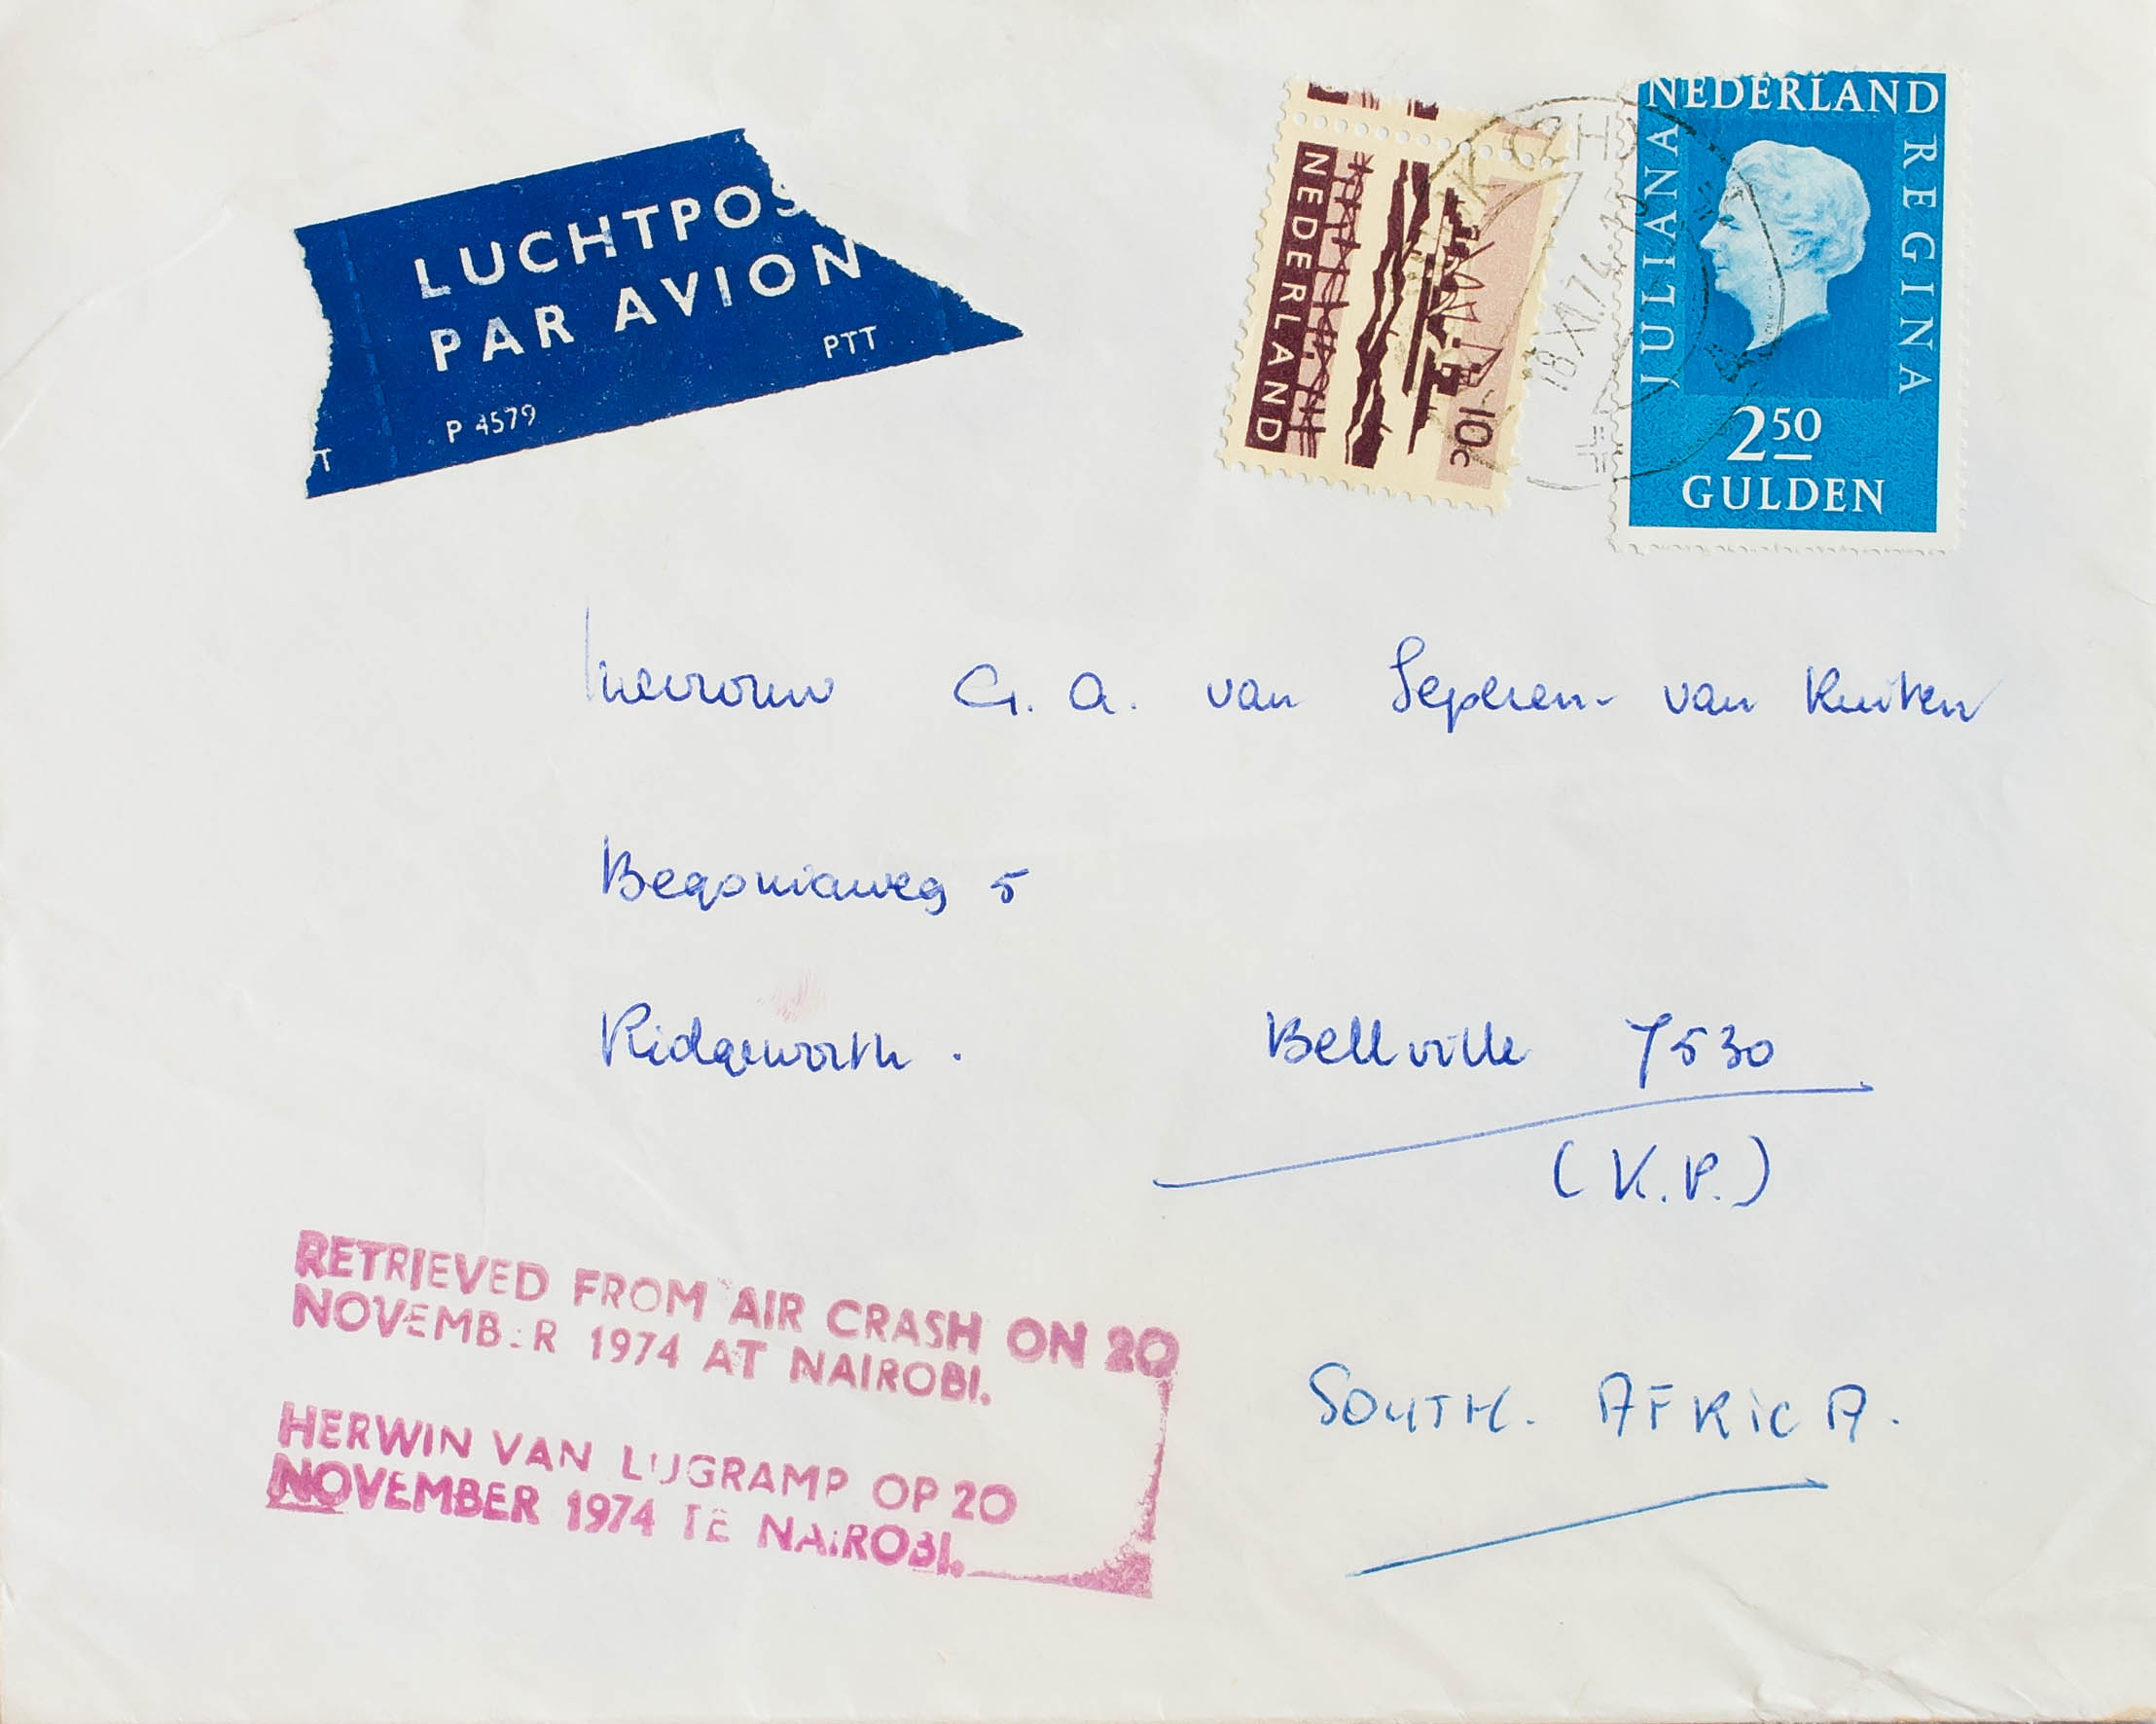 LUCHTPOS
PAR AVION
PTT
P 4579
T
NEDERLAND
10c
18.XI.74
NEDERLAND
JULIANA
REGINA
2 50
GULDEN
Mevrouw G. A. van Seperen- van Kuiken
Begoniaweg 5
Ridgeworth. Bellville 7530
(K.P.)
SOUTH. AFRICA.
RETRIEVED FROM AIR CRASH ON 20
NOVEMBER 1974 AT NAIROBI.
HERWIN VAN LUGRAMP OP 20
NOVEMBER 1974 TE NAIROBI.